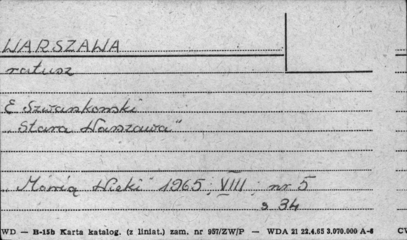 WARSZAWA
ratusz
E Szwankowski
"Stara Warszawa"
"Mówią Wieki" 1965, VIII, nr 5
s. 34
WD — B-15b Karta katalog. (z liniat.) zam. nr 957/ZW/P — WDA 21 22.4.65 3.070.000 A-6